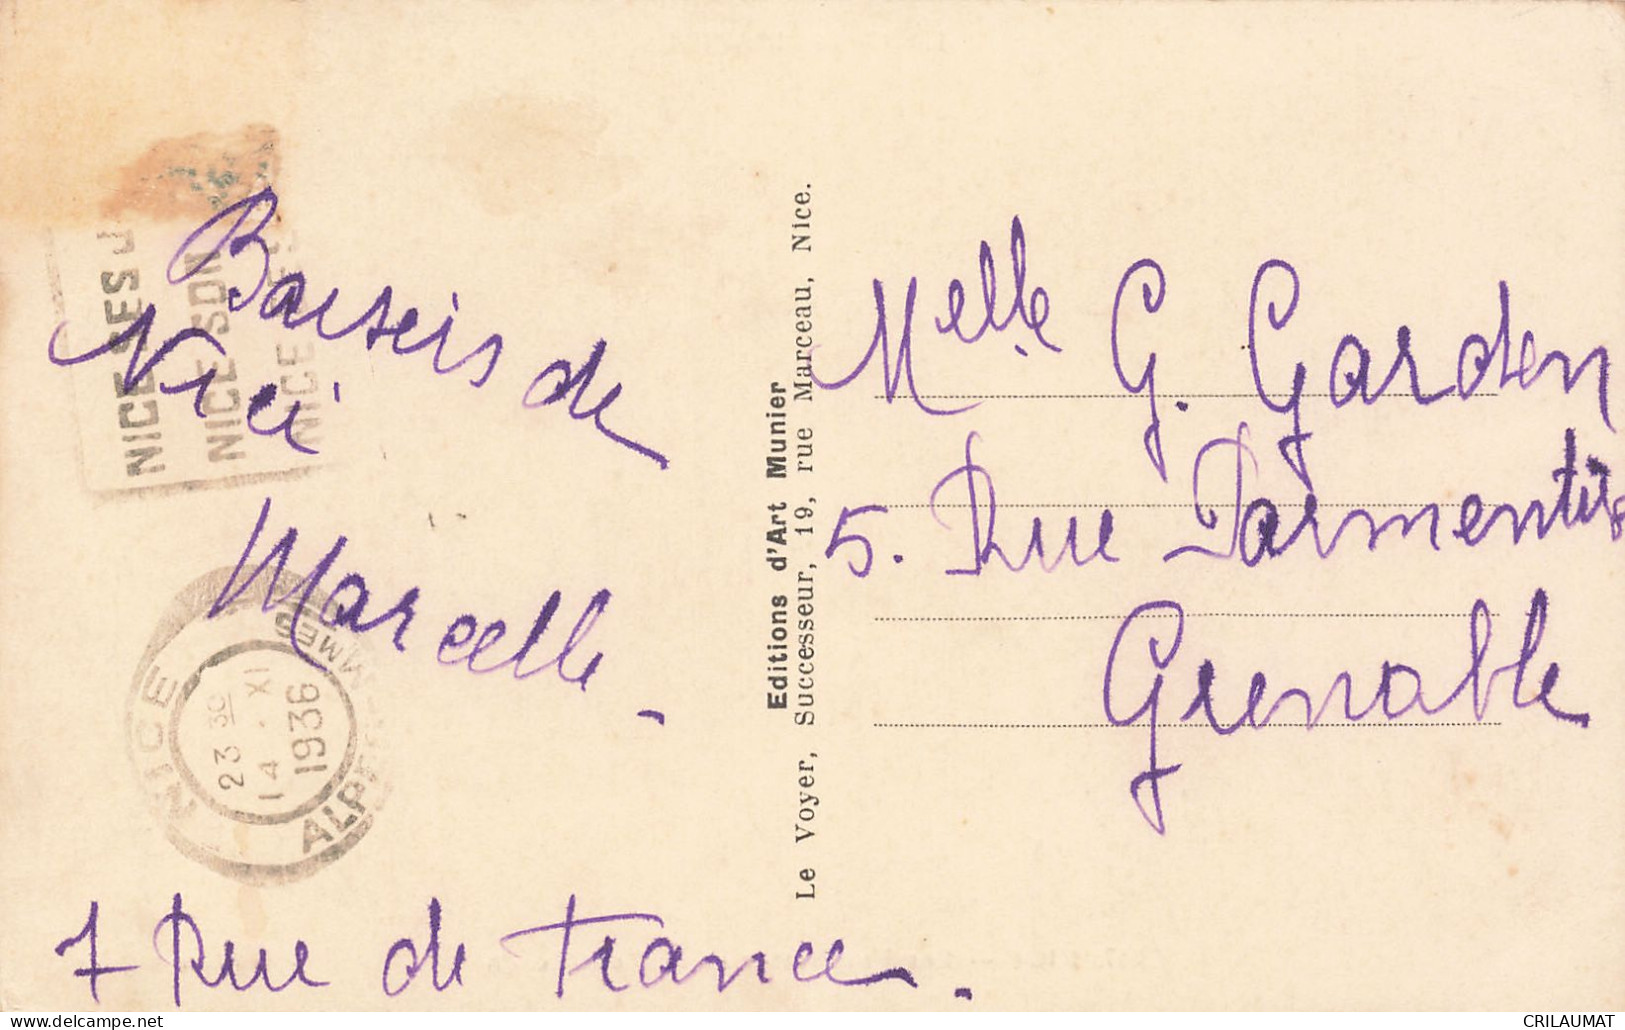 Baiseis de
Nici
Marcelle.
7 Rue de France.
NICE SES J
NICE SON
NICE SES
NICE
ALPES MMES
23 30
14 . XI
1936
Editions d'Art Munier
Le Voyer, Successeur, 19, rue Marceau, Nice.
Melle G. Garden
5. Rue Parmentier
Grenoble
CRILAUMAT